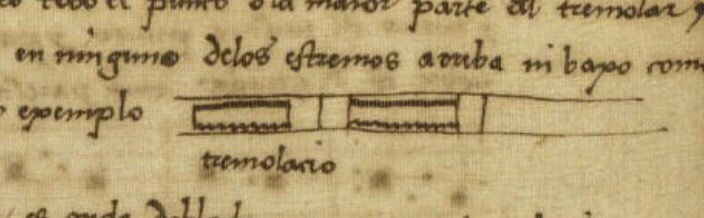 todo el punto o la maior parte del tremolar y
en ninguno delos estremos arriba ni baxo como
exemplo
tremolacio